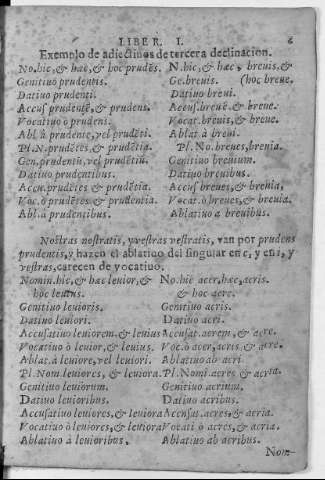 LIBER. I. 6
Exemplo de adiectiuos de tercera declinacion.
No. hic, & hæc, & hoc prudẽs. N. hic, & hæc, breuis, &
Genitiuo prudentis. Ge. breuis. (hoc breue.
Datiuo prudenti. Datiuo breui.
Accus̃ prudentẽ, & prudens. Accus̃. breuẽ. & breue.
Vocatiuo ò prudens. Vocat. breuis, & breue.
Abl. à prudente, vel prudẽti. Ablat. à breui.
Pl. N. prudẽtes, & prudẽtia. Pl. No. breues, breuia.
Gen. prudentis, vel prudẽtiũ. Genitiuo breuium.
Datiuo prudentibus. Datiuo breuibus.
Accu. prudẽtes & prudẽtia. Accus̃ breues, & breuia,
Voc. ò prudẽtes, & prudentia. Vocat. ò breues, & breuia.
Abl. à prudentibus. Ablatiuo a breuibus.
Nostras nostratis, y vestras vestratis, van por prudens
prudentis, y hazen el ablatiuo del singular en e, y en i, y
vestras, carecen de vocatiuo.
Nomin. hic, & hæc leuior, & No. hic acer, hæc, acris.
hoc leuius. & hoc acre.
Genitiuo leuioris. Genitiuo acris.
Datiuo leuiori. Datiuo acri.
Accusatiuo leuiorem, & leuius Accusat. acrem, & acre.
Vocatiuo ò leuior, & leuius. Voc. ò acer, acris & acre.
Ablat. à leuiore, vel leuiori. Ablatiuo ab acri
Pl. Nom. leuiores, & leuiora. Pl. Nomi. acres & acria.
Genitiuo leuiorum. Genitiuo acrium.
Datiuo leuioribus. Datiuo acribus.
Accusatiuo leuiores, & leuiora Accusat. acres, & acria.
Vocatiuo ò leuiores, & leuiora Vocati ò acres, & acria.
Ablatiuo à leuioribus. Ablatiuo ab acribus.
Nom-